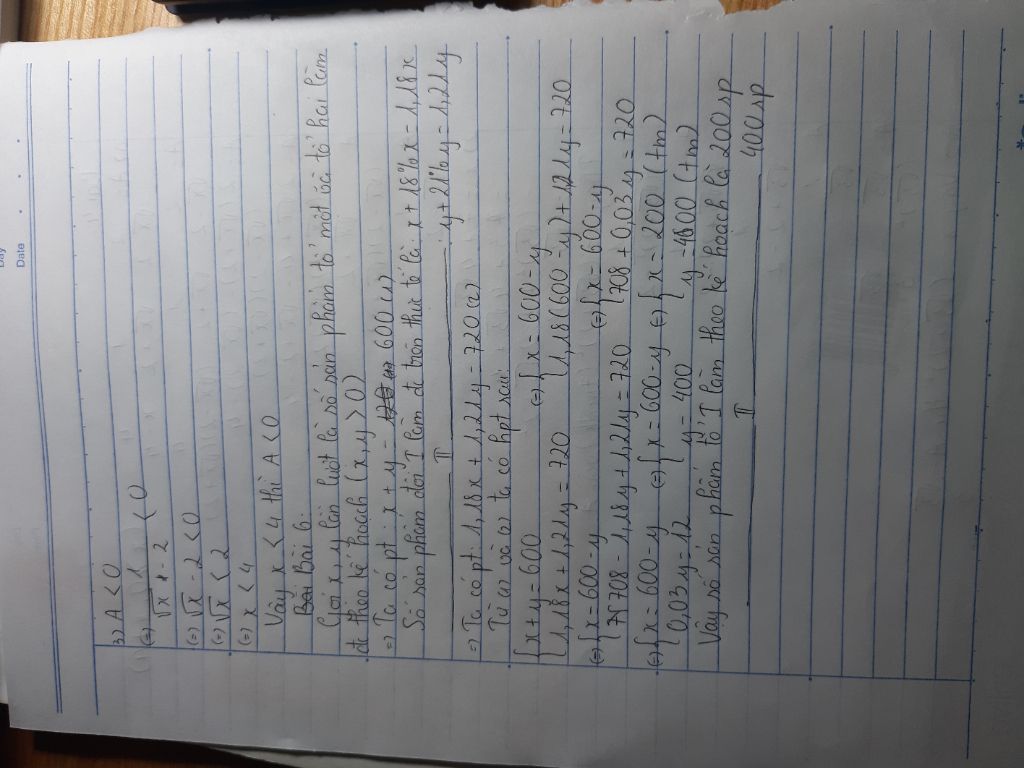 Day
Date
3) A < 0
(=) √x / √x - 2 < 0
(=) √x - 2 < 0
(=) √x < 2
(=) x < 4
Vậy x < 4 thì A < 0
Bài 6:
Gọi x, y lần lượt là số sản phẩm tổ một và tổ hai làm
đc theo kế hoạch (x, y > 0)
=> Ta có pt: x + y = 600 (1)
Số sản phẩm đội I làm đc trên thực tế là x + 18% x = 1,18x
II y + 21% y = 1,21y
=> Ta có pt: 1,18x + 1,21y = 720 (2)
Từ (1) và (2) ta có hpt sau:
{x + y = 600 (=) {x = 600 - y
{1,18x + 1,21y = 720 {1,18(600 - y) + 1,21y = 720
(=) {x = 600 - y (=) {x = 600 - y
708 - 1,18y + 1,21y = 720 708 + 0,03y = 720
(=) {x = 600 - y (=) {x = 600 - y (=) {x = 200 (tm)
{0,03y = 12 {y = 400 {y = 400 (tm)
Vậy số sản phẩm tổ I làm theo kế hoạch là 200sp
II 400sp